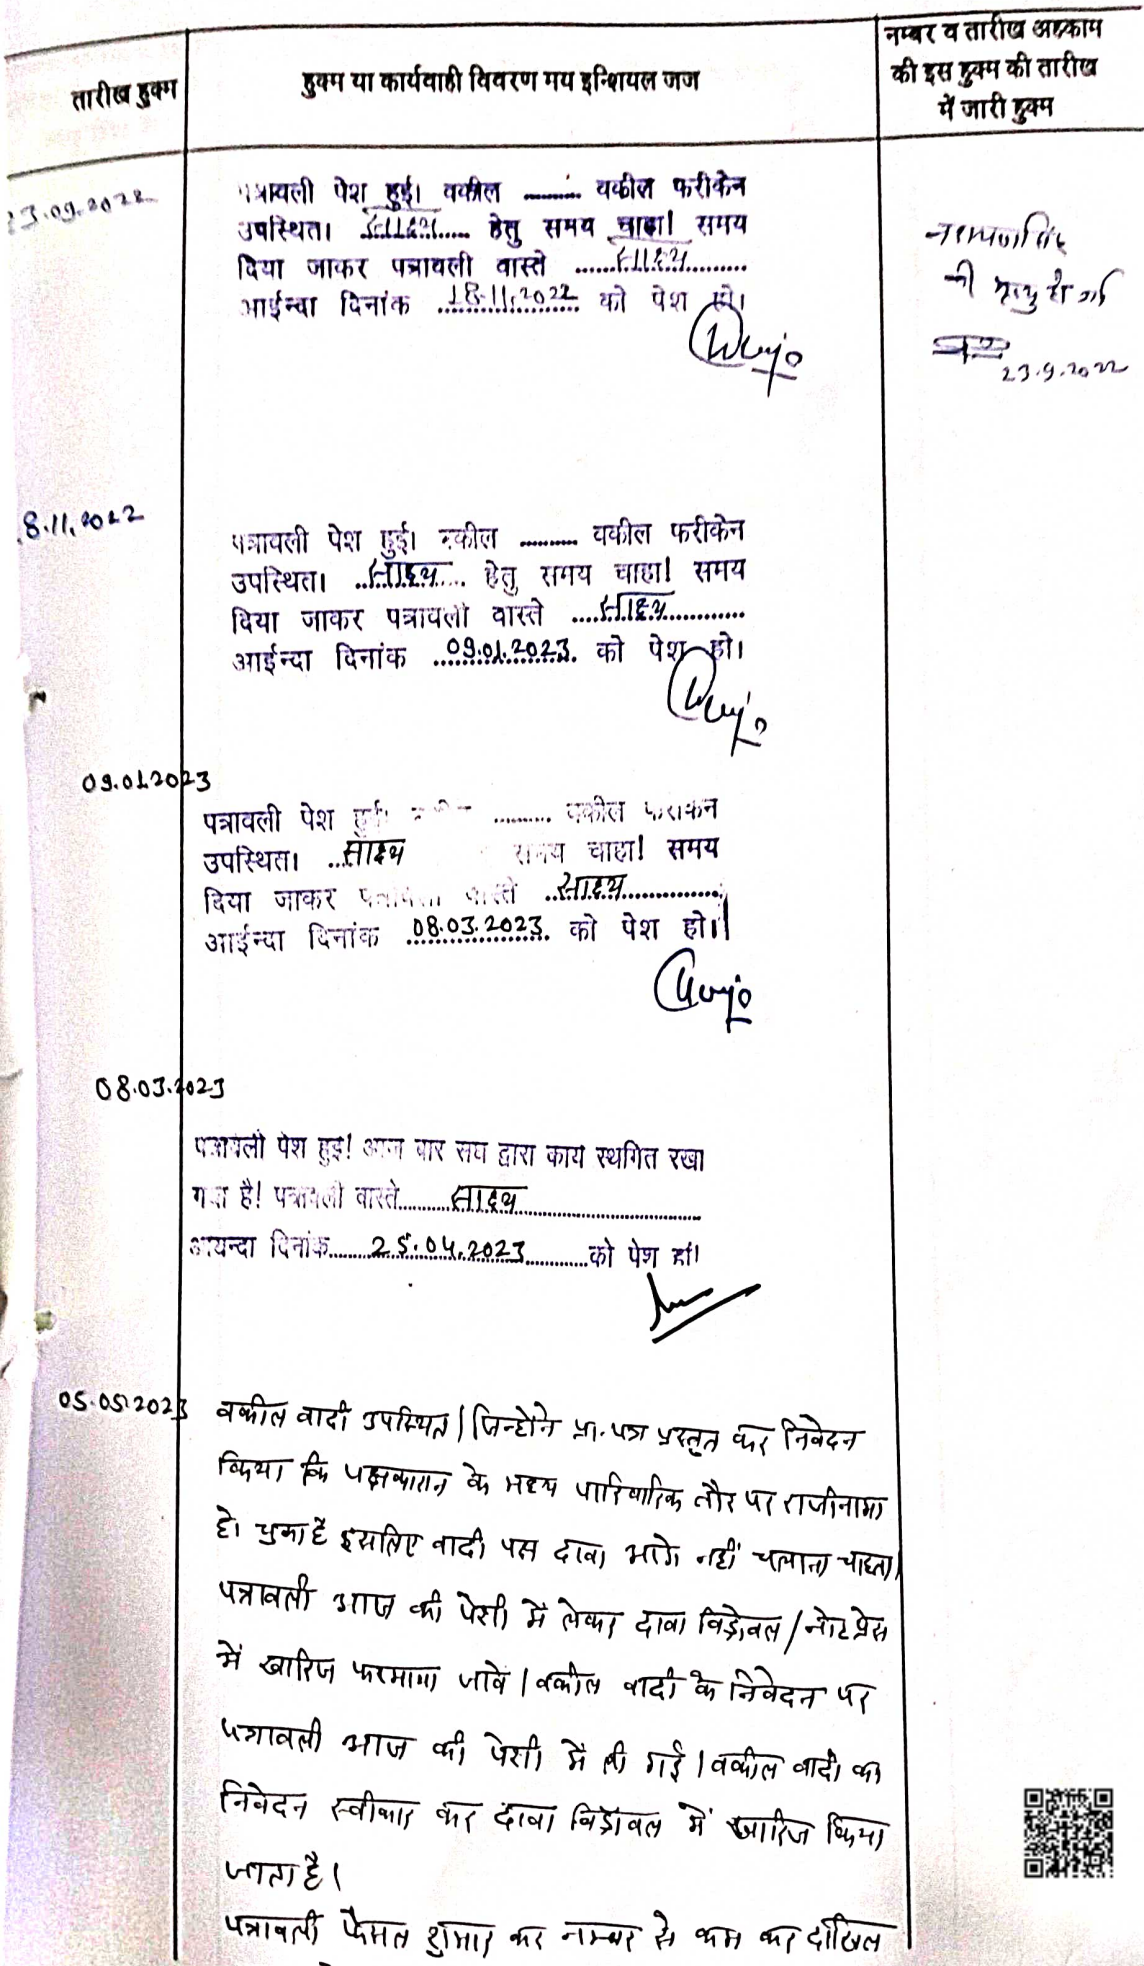 तारीख हुक्म
हुक्म या कार्यवाही विवरण मय इन्शियल जज
नम्बर व तारीख अहकाम
की इस हुक्म की तारीख
में जारी हुक्म
23.09.2022
पत्रावली पेश हुई। वकील .......... वकील फरीकेन
उपस्थित। ..साक्ष्य.... हेतु समय चाहा! समय
दिया जाकर पत्रावली वास्ते ......साक्ष्य..........
आईन्दा दिनांक ..18.11.2022.. को पेश हो।
नारायणसिंह
की मृत्यु हो गई
23.9.2022
8.11.2022
पत्रावली पेश हुई। वकील .......... वकील फरीकेन
उपस्थित। ..साक्ष्य.... हेतु समय चाहा! समय
दिया जाकर पत्रावली वास्ते ....साक्ष्य............
आईन्दा दिनांक ..09.01.2023.. को पेश हो।
09.01.2023
पत्रावली पेश हुई। .......... वकील फरीकेन
उपस्थित। ...साक्ष्य समय चाहा! समय
दिया जाकर पत्रावली वास्ते ..साक्ष्य..............
आईन्दा दिनांक ..08.03.2023.. को पेश हो।
08.03.2023
पत्रावली पेश हुई! आज बार संघ द्वारा कार्य स्थगित रखा
गया है! पत्रावली वास्ते.........साक्ष्य..............................
आयन्दा दिनांक.......25.04.2023............को पेश हो!
05.05.2023
वकील वादी उपस्थित। जिन्होंने प्रा.पत्र प्रस्तुत कर निवेदन
किया कि पक्षकारान के मध्य पारिवारिक तौर पर राजीनामा
हो चुका है इसलिए वादी दावा आगे नहीं चलाना चाहता।
पत्रावली आज की पेशी में लेकर दावा विड्रोवल/नोट प्रेस
में खारिज फरमाया जावे। वकील वादी के निवेदन पर
पत्रावली आज की पेशी में ली गई। वकील वादी का
निवेदन स्वीकार कर दावा विड्रोवल में खारिज किया
जाता है।
पत्रावली फैसल शुमार कर नम्बर से कम कर दाखिल